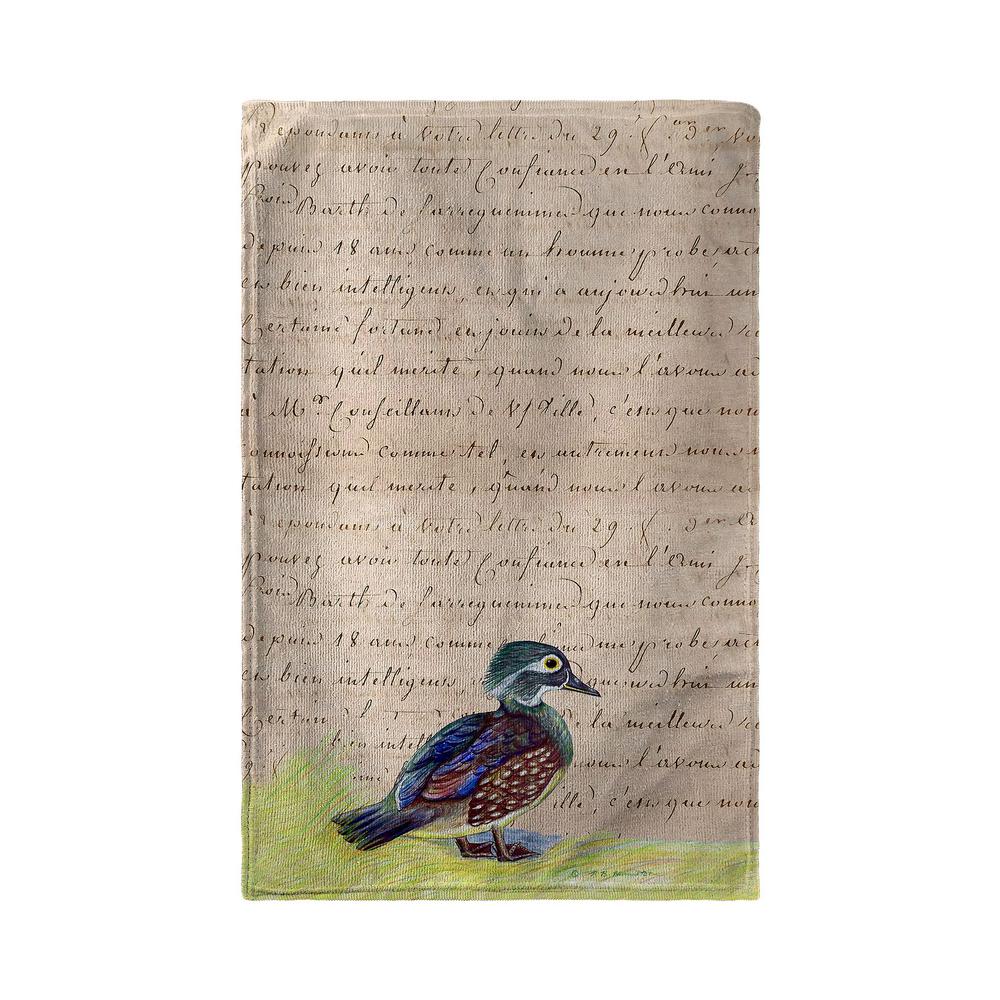 Repondans à votre lettre du 29.
pouvez avoir toute Confiance en l'Ami J.
Froid Barth de Sarreguemines que nous conno
depuis 18 ans comme un homme probe
en bien intelligens, en qui a aujourdhui un
Certaine fortune en jouis de la meilleure
tation quil merite, quand nous l'avons ad
à Mr Conseillans de V/ Ville, c'ens que nou
onnoissions comme tel, en autremens nous n
tation quil merite, quand nous l'avons ad
repondans à votre lettre du 29.
pouvez avoir toute Confiance en l'Ami J.
Froid Barth de Sarreguemines que nous conno
depuis 18 ans comme probe
en bien intelligens hui un
Certain de la meilleure
bien intell nous l'avons ad
ille, c'ens que nou